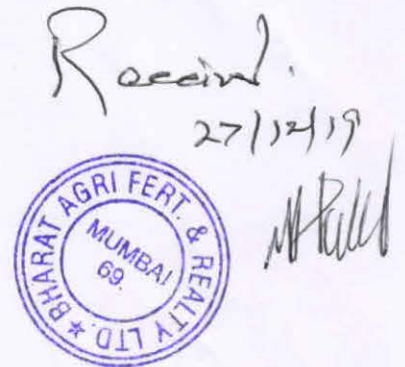 Received.
27/12/19
BHARAT AGRI FERT. & REALTY LTD. ★
MUMBAI
69.